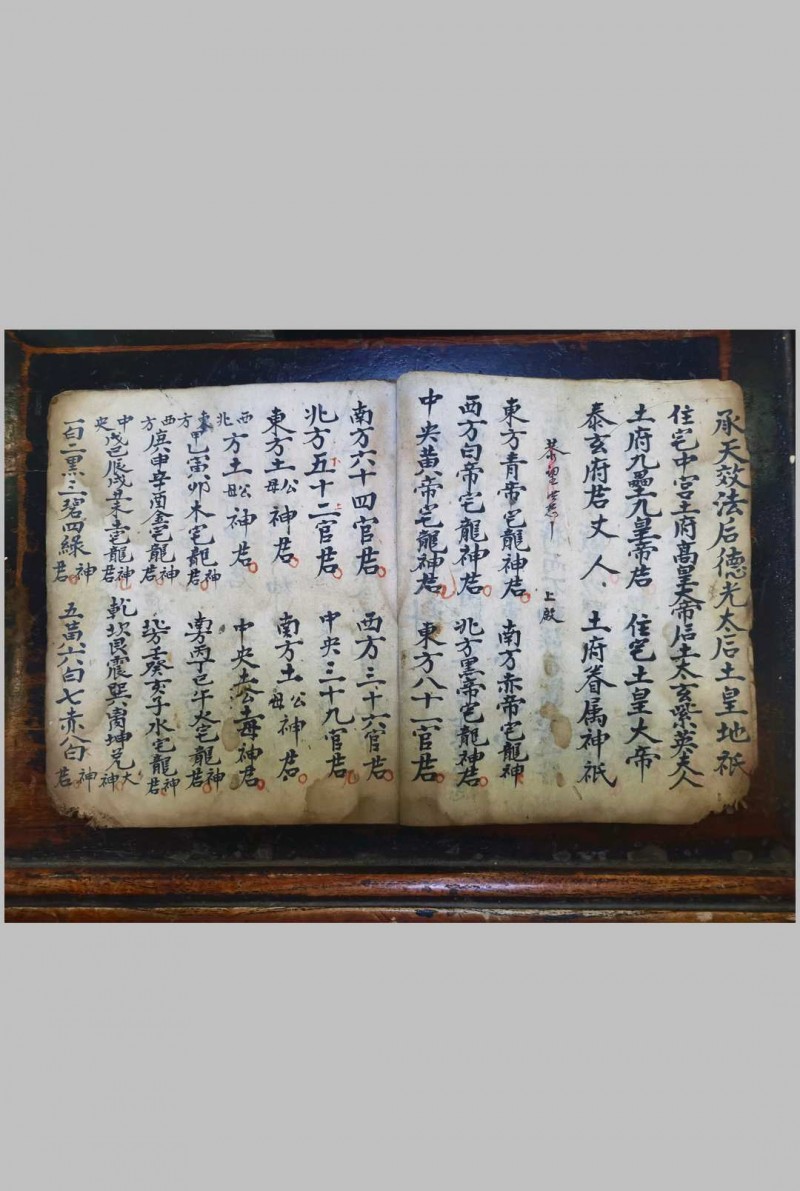 承天效法后德光太后土皇地祇
住宅中宮土府高皇大帝后土太玄紫英夫人
土府九壘九皇帝君 住宅土皇大帝
泰玄府君丈人 土府眷属神祇
上殿
東方青帝宅龍神君 南方赤帝宅龍神
西方白帝宅龍神君 北方黑帝宅龍神君
中央黄帝宅龍神君 東方八十一官君
南方六十四官君 西方三十六官君
北方五十二官君 中央三十九官君
東方土公母神君 南方土公母神君
西北方土公母神君 中央土公土母神君
東方甲乙寅卯木宅龍神君 南方丙丁巳午火宅龍神君
西方庚申辛酉金宅龍神君 北方壬癸亥子水宅龍神君
中央戊己辰戌丑未土宅龍神君 乾坎艮震巽离坤兑大神
一白二黒三碧四綠神君 五黃六白七赤八白神君